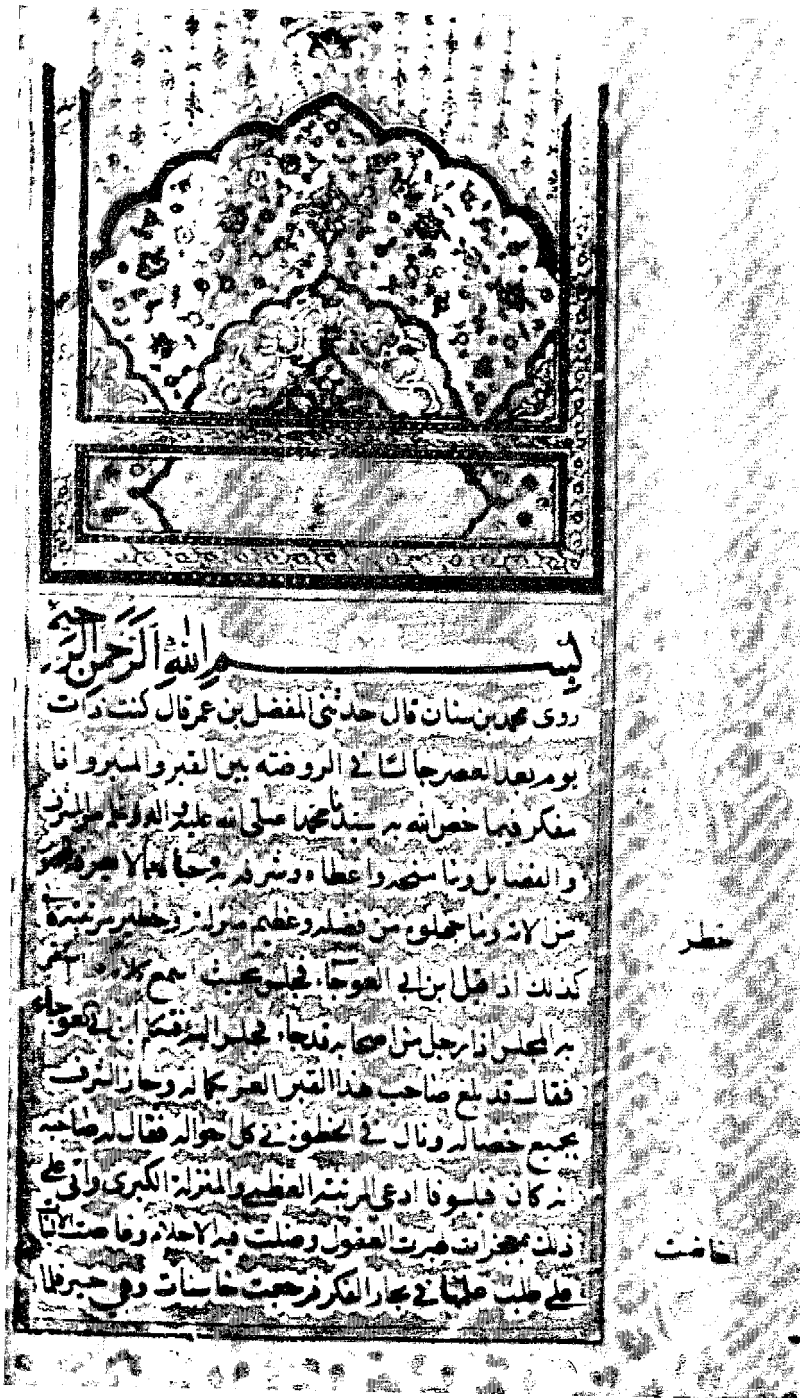 بسم الله الرحمن الرحيم
روى محمد بن سنان قال حدثني المفضل بن عمر قال كنت ذات
يوم بعد العصر جالسا في الروضة بين القبر والمنبر وانا
مفكر فيما خص الله به سيدنا محمدا صلى الله عليه واله من الشرف
والفضايل وما منحه واعطاه وشرفه به وحباه مما لا يعرفه
من الامة وما جهلوه من فضله وعظيم منزلته وخطير مرتبته
كذلك اذ اقبل ابن ابي العوجاء فجلس بحيث اسمع كلامه
به المجلس اذا رجل من اصحابه قد جاء فجلس اليه فتكلم ابن ابي العوجاء
فقال لقد بلغ صاحب هذا القبر العز بكماله وحاز الشرف
بجميع خصاله ونال الحظوة في كل احواله فقال له صاحبه
انه كان فيلسوفا ادعى المرتبة العظمى والمنزلة الكبرى واتى على
ذلك بمعجزات بهرت العقول وضلت فيه الاحلام وغاصت الالباب
على طلب علمها في بحار الفكر فرجعت خاسئات وهي حسر فلما
خطر
غاصت